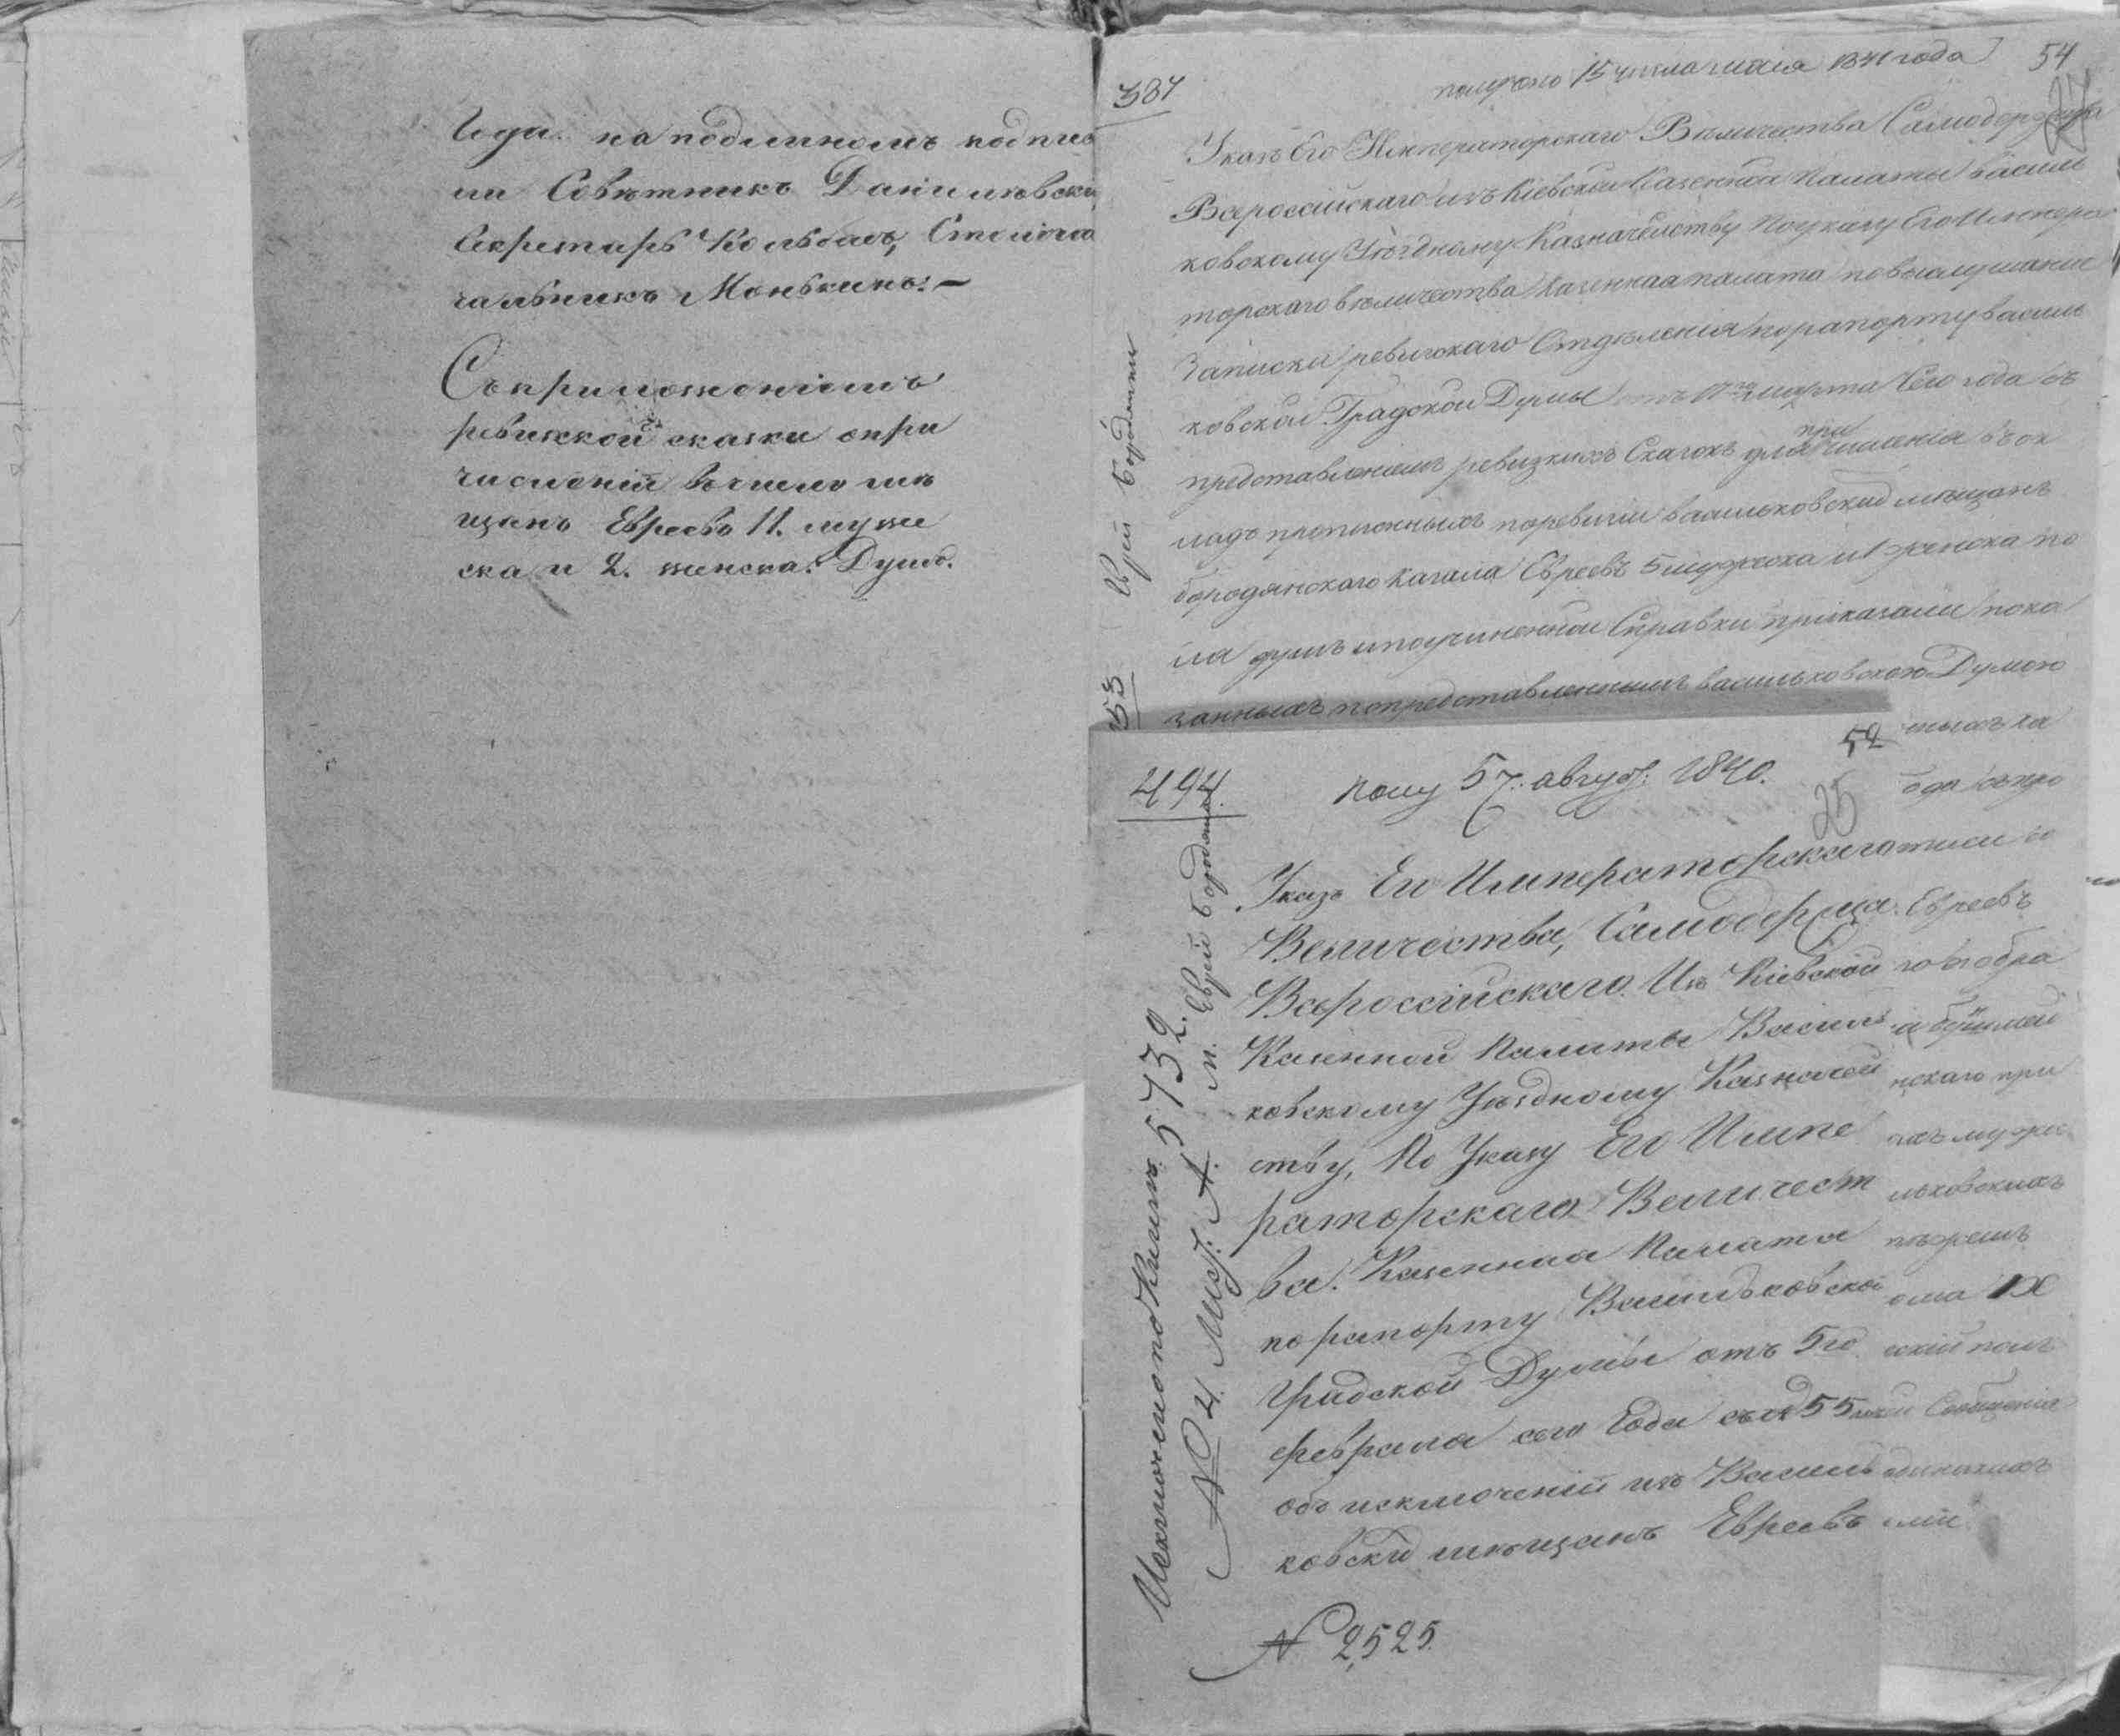 Года. на подлинномъ подписа
ли Совѣтникъ Данилевскі
Секретарь Столона
чальникъ Монькинъ: —
Съ приложеніемъ
ревижской сказки о при
численіи въ число мѣ
щанъ Евреевъ 11. мужес
ка и 2. женска. Душъ.
387
получено 15 числа маія 1841 года
54
Указъ Его Императорскаго Величества Самодержца
Всероссійскаго изъ Кіевской Казенной Палаты Василь
ковскому Уѣздному Казначейству По указу Его Импера
торскаго величества Казенная палата по выслушаніи
Записки ревизскаго Отдѣленія по рапорту василь
ковской Градской Думы отъ 17го марта Сего года съ
представленіемъ ревизкихъ Сказокъ для причисленія въ ок
ладъ прописныхъ по ревизіи васильковскихъ мѣщанъ
бородянскаго Кагала Евреевъ 5 мужеска и 1 женска по
ла душъ и по учиненной Справки приказали пока
занныхъ по представленнымъ васильковскою Думою
Еврей Бородянки
53
494.
полу 5 7. август: 1840.
52
25
Указъ Его Императорскаго
Величества, Самодержца
Всероссійскаго. Изъ Кіевской
Казенной Палаты Василь
ковскому Уѣздному Казначей
ству, По Указу Его Импе
раторскаго Величест
ва. Казенная Палата
по рапорту Васильковской
Градской Думы отъ 5го
февраля сего Года съ № 55
объ исключеніи изъ Василь
ковскихъ мѣщанъ Евреевъ
№ 2,525.
Исключено по Книгѣ 5732.
№ 4. Мист: А. м. Еврей Бородянка
Евреевъ
нскаго при
льковскихъ
ома IX
ескій полъ
Сообщенія